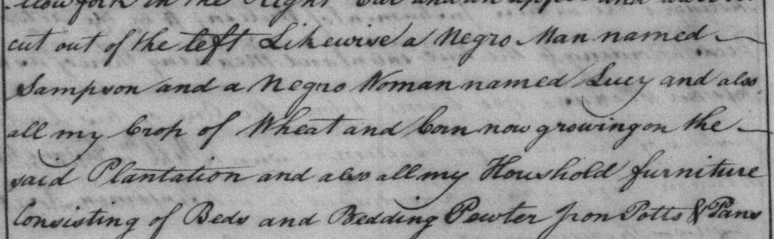 in the Right Ear and an
cut out of the left Likewise a Negro Man named
Sampson and a Negro Woman named Lucy and also
all my Crop of Wheat and Corn now growing on the
said Plantation and also all my Houshold furniture
Consisting of Beds and Bedding Pewter Iron Potts & Pans